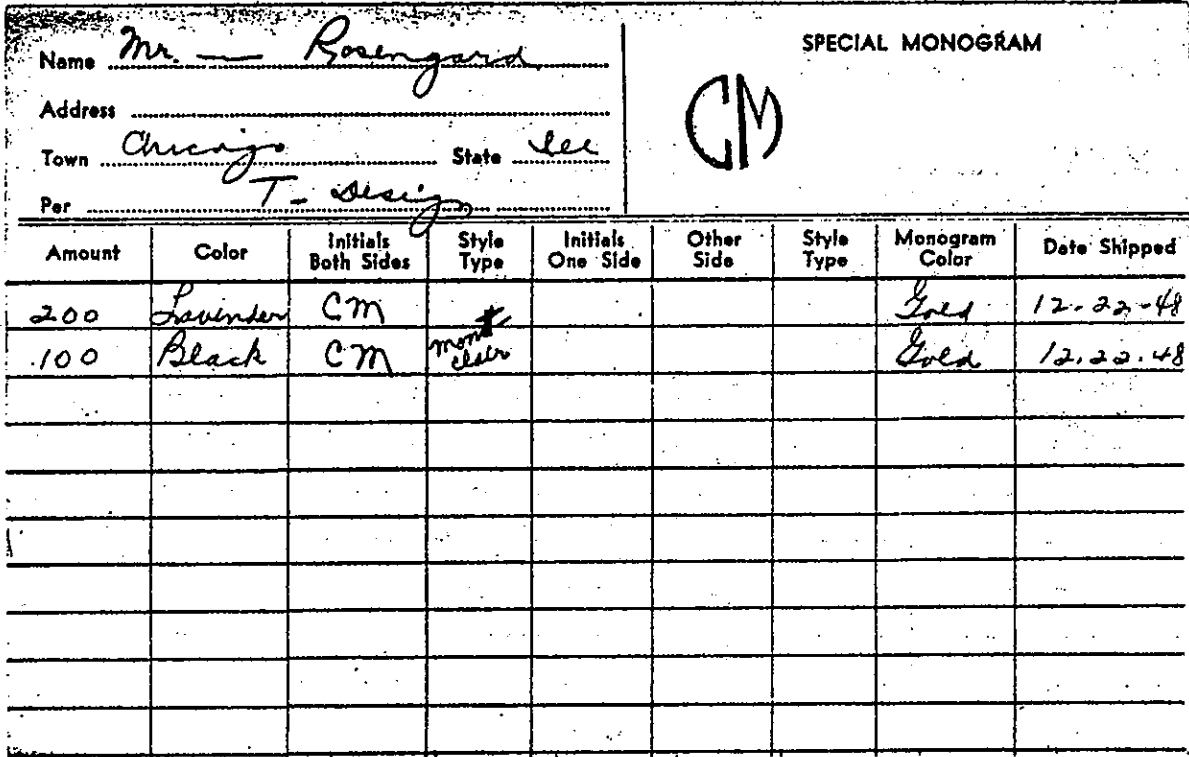 Name Mr. — Rosengard
Address
Town Chicago State Ill
Per T- Design
SPECIAL MONOGRAM
CM
Amount Color Initials Both Sides Style Type Initials One Side Other Side Style Type Monogram Color Date Shipped
200 Lavinder CM Gold 12-22-48
100 Black CM Gold 12.22.48